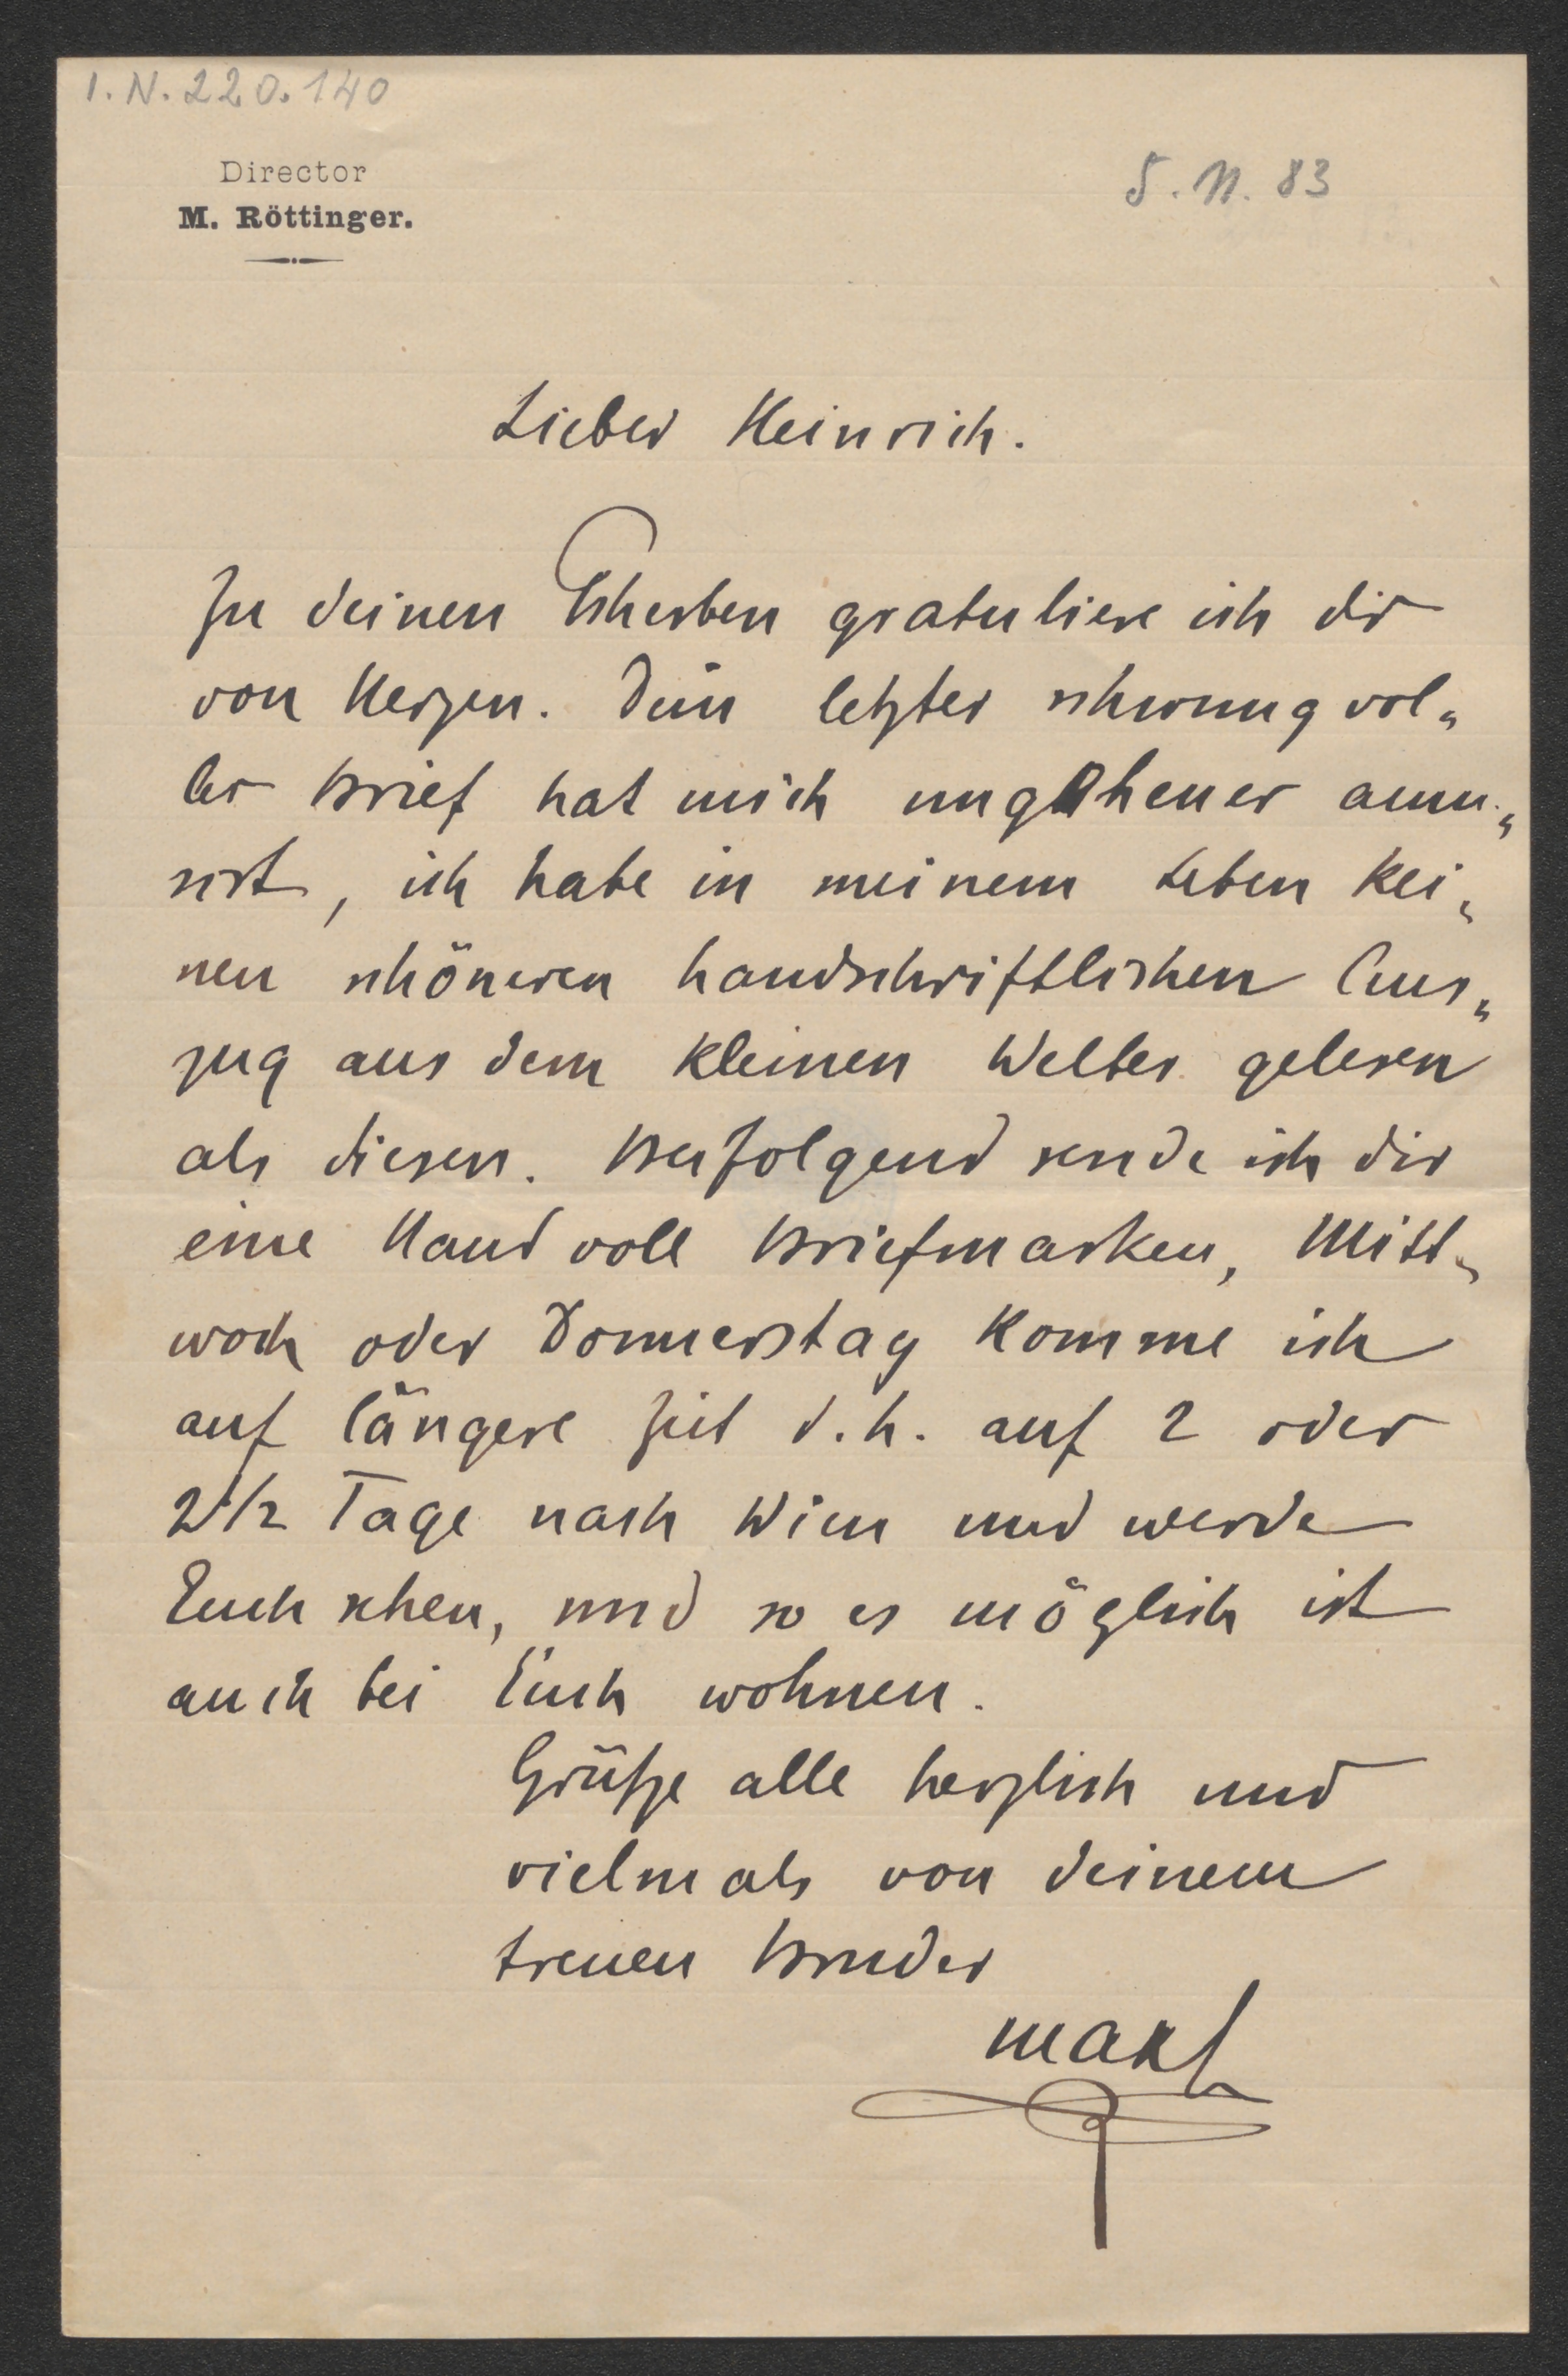 I.N. 220.140
Director
M. Röttinger.
5. 11. 83
Lieber Heinrich.
Zu deinen Scherben gratuliere ich dir
von Herzen. Dein letzter schwungvol„
ler Brief hat mich ungeheuer amu„
sirt, ich habe in meinem Leben kei„
nen schöneren handschriftlichen Aus„
zug aus dem kleinen Welter gelesen
als diesen. Beifolgend sende ich dir
eine Hand voll Briefmarken, Mitt„
woch oder Donnerstag komme ich
auf längere Zeit d.h. auf 2 oder
2 1/2 Tage nach Wien und werde
Euch sehen, und so es möglich ist
auch bei Euch wohnen.
Grüße alle herzlich und
vielmals von deinem
treuen Bruder
Max